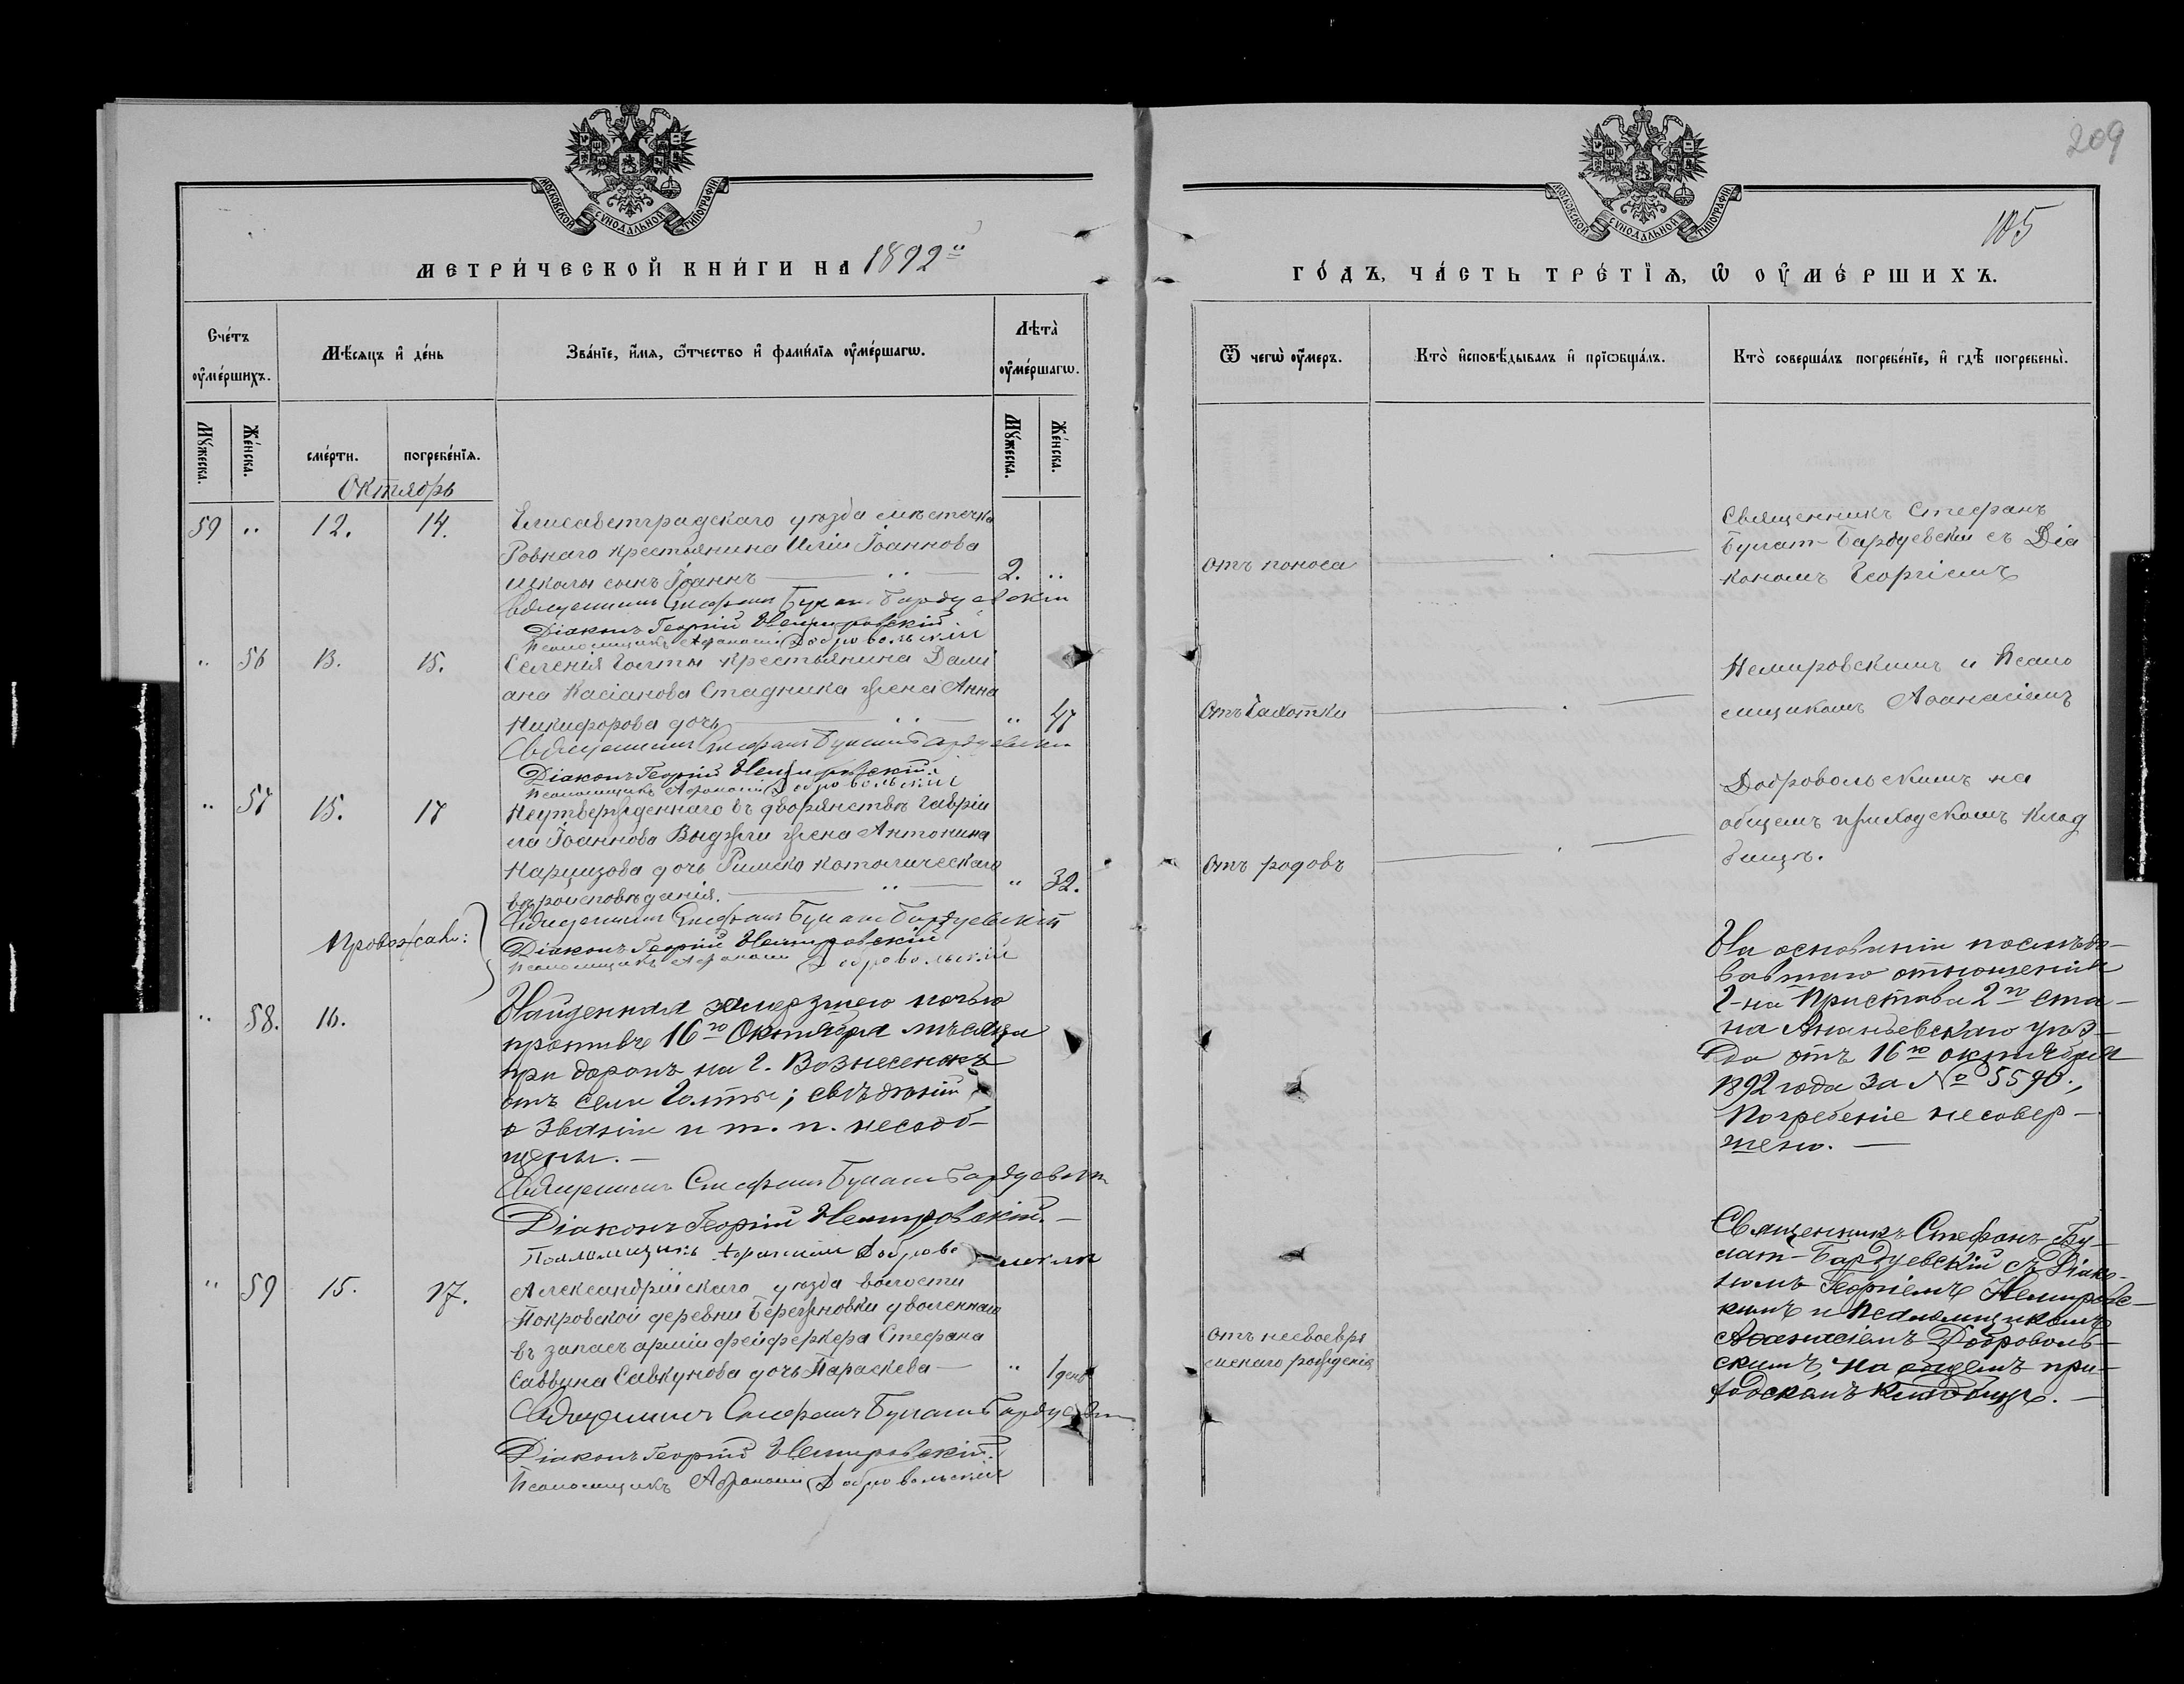 209
105
МОСКОВСКОЙ СѴНОДАЛЬНОЙ ТИПОГРАФІИ
МОСКОВСКОЙ СѴНОДАЛЬНОЙ ТИПОГРАФІИ
МЕТРИ́ЧЕСКОЙ КНИ́ГИ НА 1892й
ГО́ДЪ, ЧА́СТЬ ТРЕ́ТІѦ, Ѡ ОУ҆МЕ́РШИХЪ.
Сче́тъ оу҆ме́ршихъ.
Мѣ́сяцъ и҆ де́нь
Зва́нїе, и҆́мѧ, ѻ҆́тчество и҆ фами́лїѧ оу҆ме́ршагѡ.
Лѣта̀ оу҆ме́ршагѡ.
Ѿ чегѡ̀ оу҆́меръ.
Кто̀ и҆сповѣ́дывалъ и҆ прїѡбща́лъ.
Кто̀ соверша́лъ погребе́нїе, и҆ гдѣ̀ погребены̀.
Мꙋ́жеска.
Же́нска.
сме́рти.
погребе́нїѧ.
Мꙋ́жеска.
Же́нска.
Октябрь
59 " 12. 14. Елисаветградскаго уѣзда мѣстечка
Ровнаго крестьянина Иліи Іоаннова
сынъ Іоаннъ — " — 2. "
Священникъ Стефанъ Булатъ-Бардуевскій
Діаконъ Георгій Немировскій.
Псаломщикъ Афанасій Добровольскій
отъ поноса
Священникъ Стефанъ
Булат-Бардуевскій съ Діа
кономъ Георгіемъ
" 56 13. 15. Селенія Голты крестьянина Даміана
ана Касіанова Стадника жена Анна
Никифорова дочь — " — " 47
Священникъ Стефанъ Булатъ-Бардуевскій
Діаконъ Георгій Немировскій.
Псаломщикъ Афанасій Добровольскій
Отъ Чахотки
Немировскимъ и Псало
мщикомъ Аѳанасіемъ
" 57 15. 17 Неутвержденнаго въ дворянствѣ Гавріи
ла Іоаннова жена Антонина
Нарцизова дочь Римско католическаго
вѣроисповѣданія. — " — " 32.
Священникъ Стефанъ Булатъ-Бардуевскій
Діаконъ Георгій Немировскій
Псаломщикъ Афанасій Добровольскій
Отъ родовъ
Добровольскимъ на
общемъ приходскомъ клад
бищѣ.
" 58. 16. Найденная замерзшею ночью
противъ 16го Октября мѣсяца
при дорогѣ на г. Вознесенскъ
отъ села Голты; свѣдѣній
о званіи и т. п. несооб-
щены. —
Священникъ Стефанъ Булатъ-Бардуевскій
Діаконъ Георгій Немировскій. —
Псаломщикъ Афанасій Добровольскій
На основаніи послѣдо-
вавшаго отношенія
Г-на Пристава 2го ста-
на Ананьевскаго уѣз-
да отъ 16го октября
1892 года за № 5590.,
Погребеніе несовер-
шено. —
" 59 15. 17. Александрійскаго уѣзда волости
Покровской деревни Бережновки уволеннаго
въ запасъ арміи фейферкера Стефана
Саввина Савкунова дочь Параскева — " 1 день
Священникъ Стефанъ Булатъ-Бардуевскій
Діаконъ Георгій Немировскій.
Псаломщикъ Афанасій Добровольскій
отъ несвоевре
меннаго рожденія
Священникъ Стефанъ Бу-
лат-Бардуевскій съ Діако-
номъ Георгіемъ Немировс-
кимъ и Псаломщикомъ
Аѳанасіемъ Доброволь-
скимъ, на общемъ при-
ходскомъ кладбищѣ. —